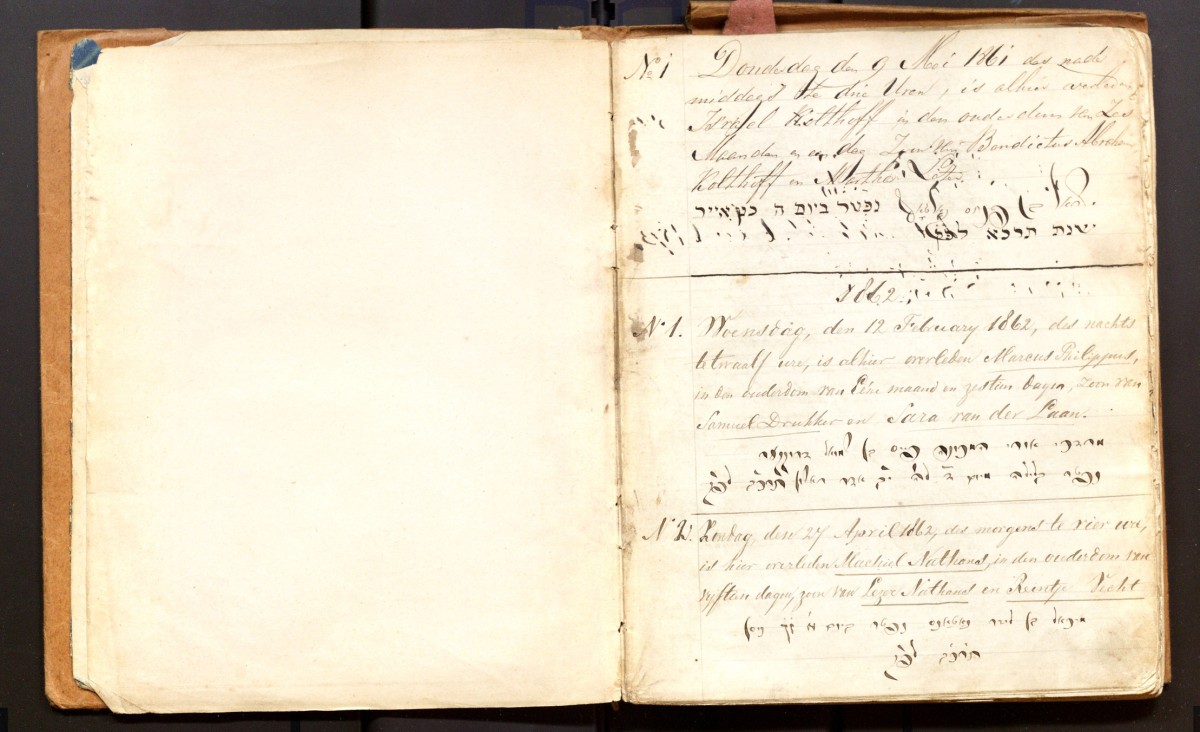 No 1 Donderdag den 9 Mei 1861 des nach
middags te drie Uren, is alhier
Israel Kolthoff in den ouderdom van Zes
Maanden en een dag Zoon van Bendictus Abraham
Kolthoff en Martha
נפטר ביום ה כט אייר
שנת תרכא לפק
1862
No 1. Woensdag, den 12 February 1862, des nachts
te twaalf ure, is alhier overleden Marcus Philippus,
in den ouderdom van Eéne maand en zestien dagen, zoon van
Samuel Drukker en Sara van der Laan.
מרדכי אורי המכונה בן
נפטר בלילה יב אדר תרכב לפק
No 2. Zondag den 27 April 1862, des morgens te vier ure,
is hier overleden Machiel Nathans, in den ouderdom van
vyftien dagen, zoon van Levie Nathans en Reintje Vecht
מיכאל בן נפטר ביום א ניסן
תרכב לפק